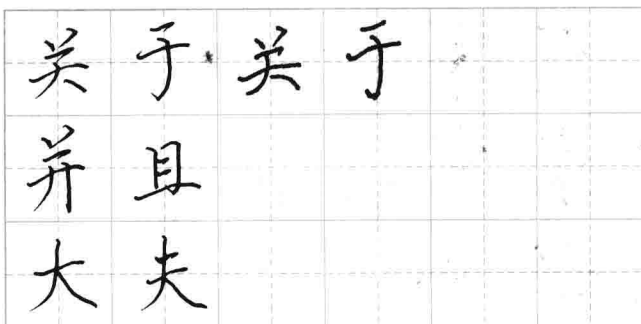 关于关于
并且
大夫